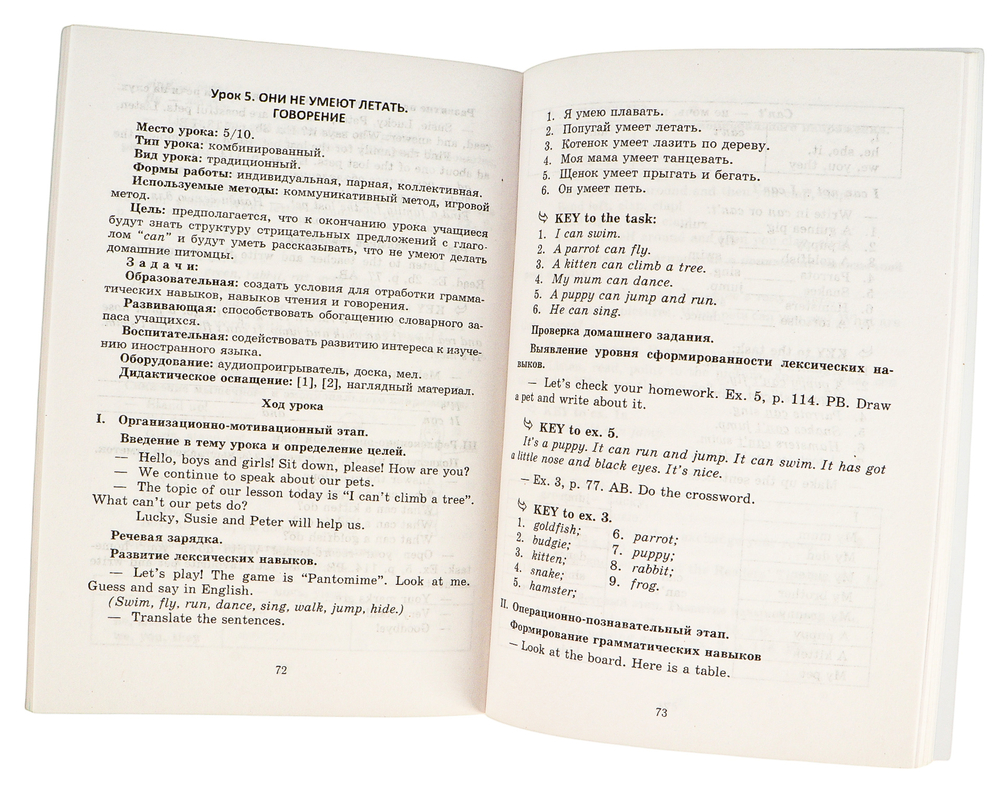 Урок 5. ОНИ НЕ УМЕЮТ ЛЕТАТЬ.
ГОВОРЕНИЕ
Место урока: 5/10.
Тип урока: комбинированный.
Вид урока: традиционный.
Формы работы: индивидуальная, парная, коллективная.
Используемые методы: коммуникативный метод, игровой
метод.
Цель: предполагается, что к окончанию урока учащиеся
будут знать структуру отрицательных предложений с глаго-
лом “can” и будут уметь рассказывать, что не умеют делать
домашние питомцы.
Задачи:
Образовательная: создать условия для отработки грамма-
тических навыков, навыков чтения и говорения.
Развивающая: способствовать обогащению словарного за-
паса учащихся.
Воспитательная: содействовать развитию интереса к изуче-
нию иностранного языка.
Оборудование: аудиопроигрыватель, доска, мел.
Дидактическое оснащение: [1], [2], наглядный материал.
Ход урока
I. Организационно-мотивационный этап.
Введение в тему урока и определение целей.
— Hello, boys and girls! Sit down, please! How are you?
— We continue to speak about our pets.
— The topic of our lesson today is “I can’t climb a tree”.
What can’t our pets do?
Lucky, Susie and Peter will help us.
Речевая зарядка.
Развитие лексических навыков.
— Let’s play! The game is “Pantomime”. Look at me.
Guess and say in English.
(Swim, fly, run, dance, sing, walk, jump, hide.)
— Translate the sentences.
72
1. Я умею плавать.
2. Попугай умеет летать.
3. Котенок умеет лазить по дереву.
4. Моя мама умеет танцевать.
5. Щенок умеет прыгать и бегать.
6. Он умеет петь.
KEY to the task:
1. I can swim.
2. A parrot can fly.
3. A kitten can climb a tree.
4. My mum can dance.
5. A puppy can jump and run.
6. He can sing.
Проверка домашнего задания.
Выявление уровня сформированности лексических на-
выков.
— Let’s check your homework. Ex. 5, p. 114. PB. Draw
a pet and write about it.
KEY to ex. 5.
It’s a puppy. It can run and jump. It can swim. It has got
a little nose and black eyes. It’s nice.
— Ex. 3, p. 77. AB. Do the crossword.
KEY to ex. 3.
1. goldfish;
2. budgie;
3. kitten;
4. snake;
5. hamster;
6. parrot;
7. puppy;
8. rabbit;
9. frog.
II. Операционно-познавательный этап.
Формирование грамматических навыков
— Look at the board. Here is a table.
73